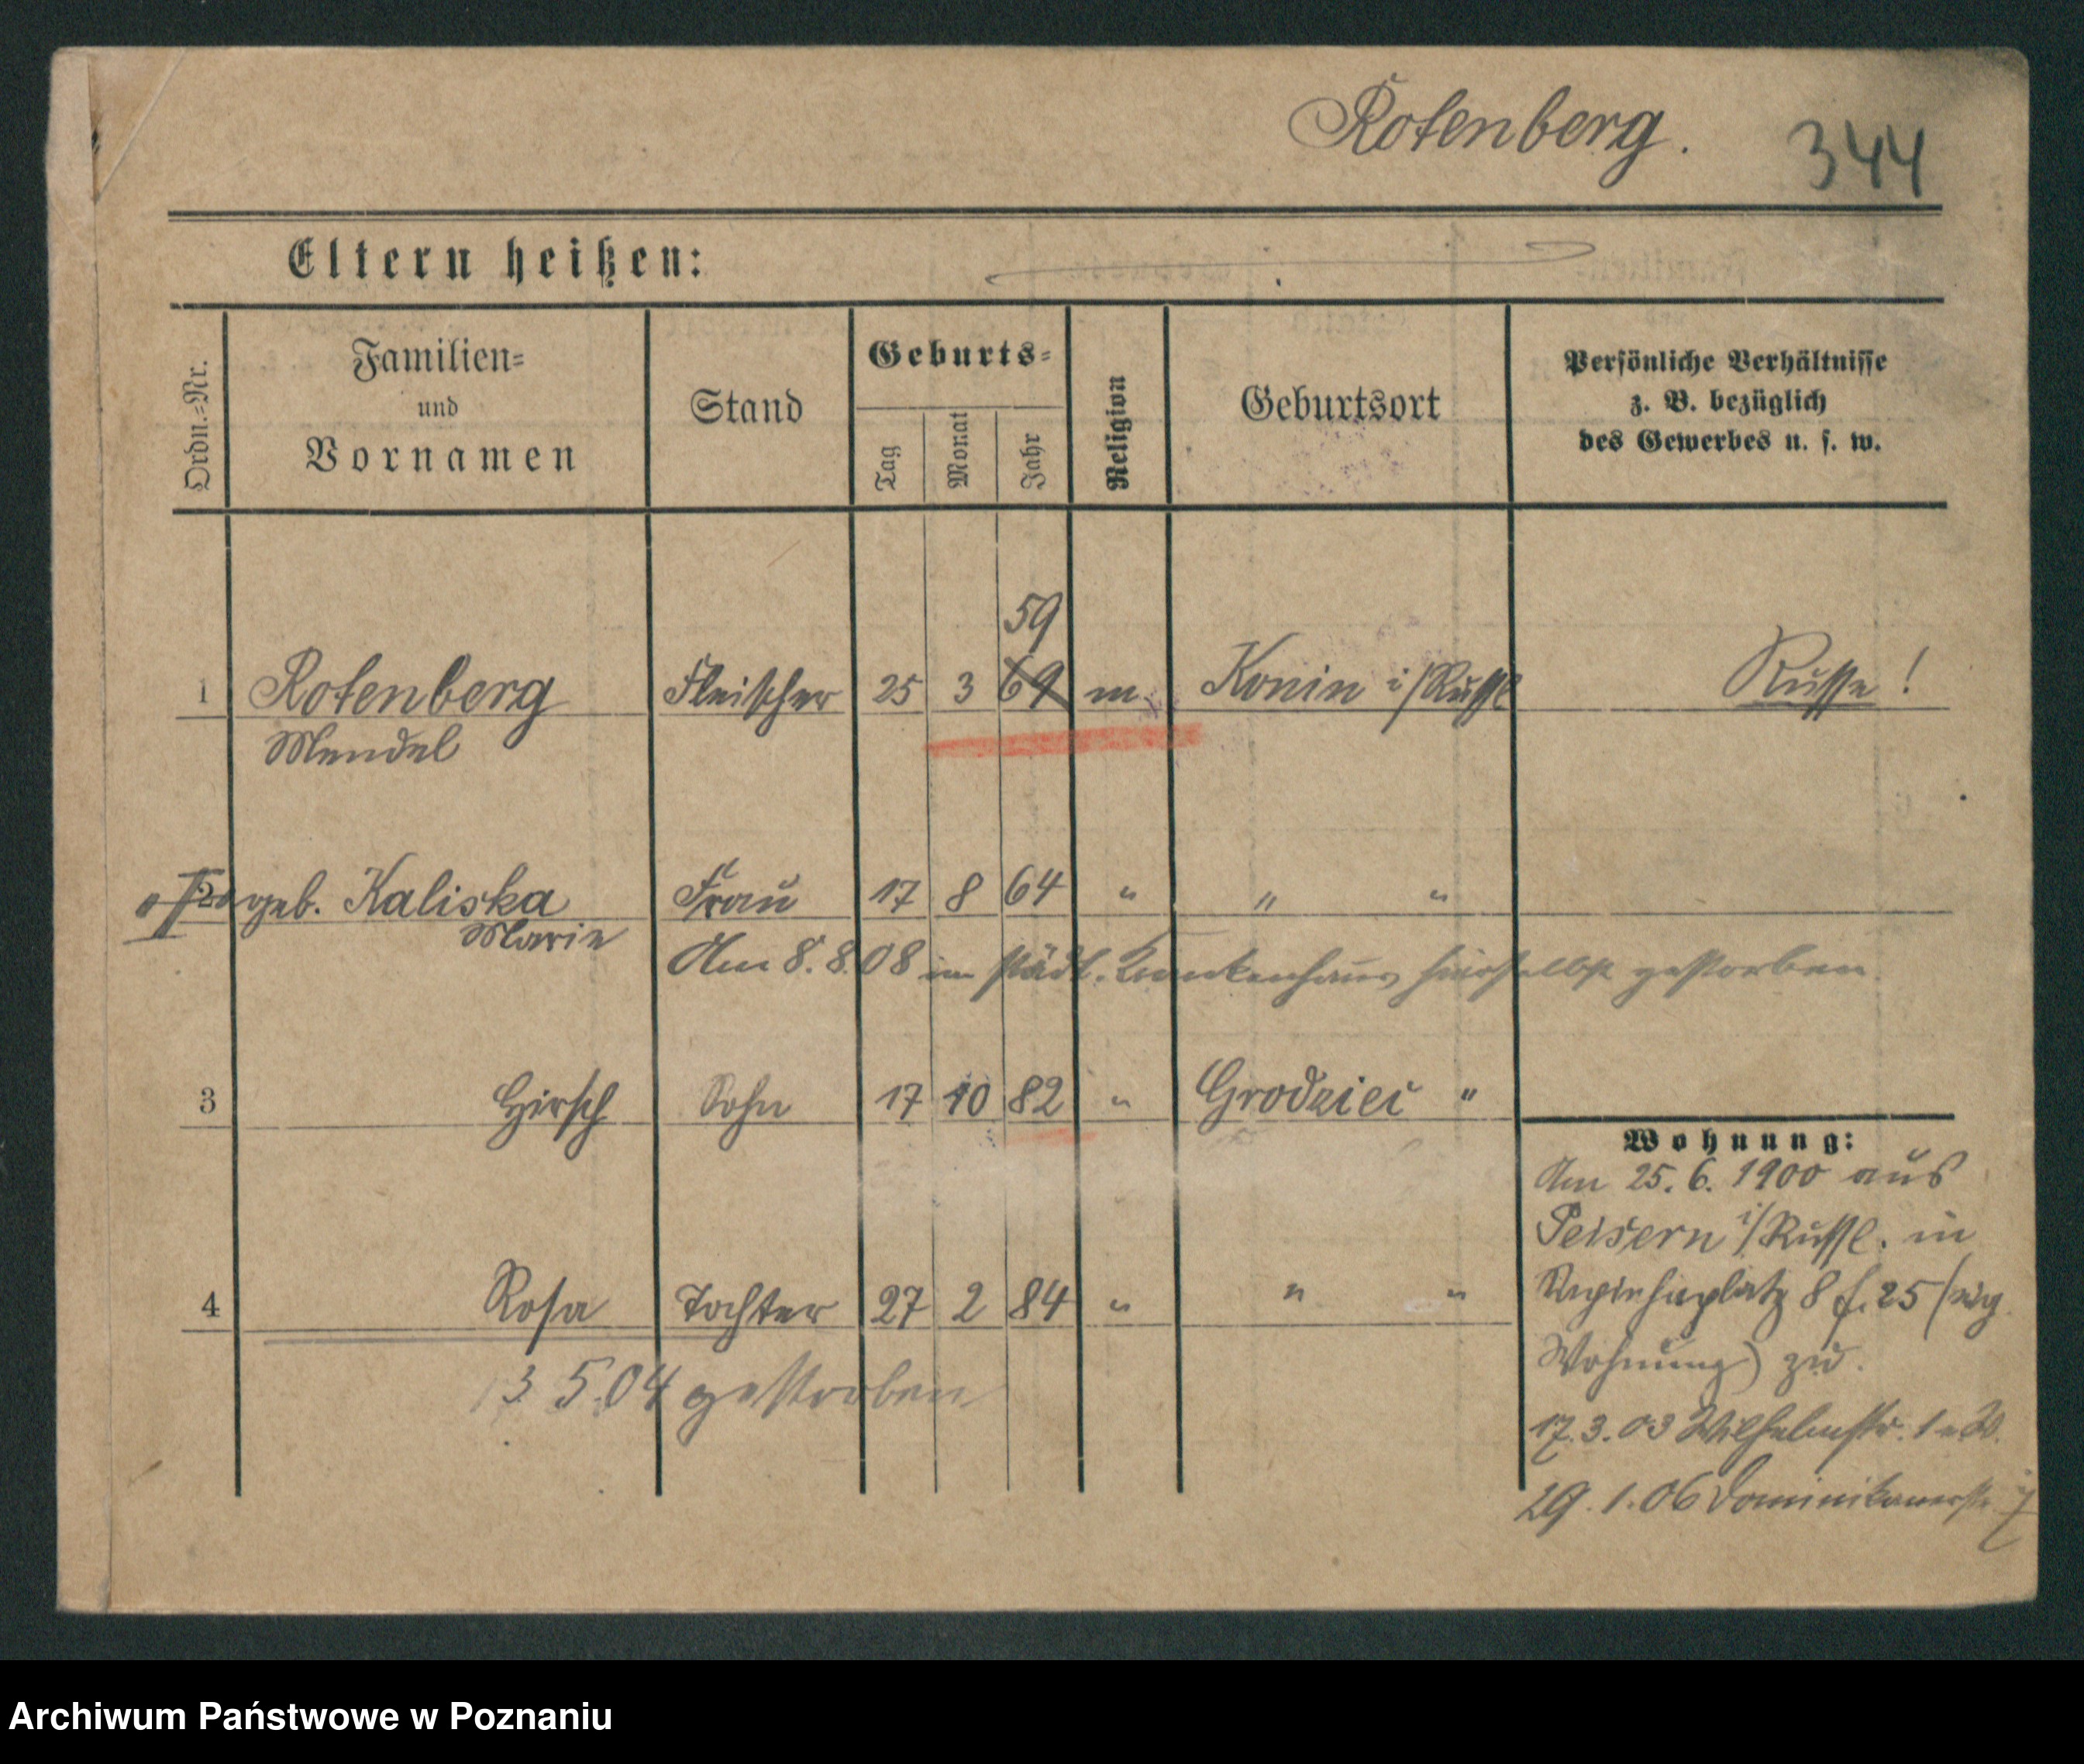 Rotenberg. 344
Eltern heißen:
Ordn.-Nr.
Familien-
und
Vornamen
Stand
Geburts-
Tag
Monat
Jahr
Religion
Geburtsort
Persönliche Verhältnisse
z. B. bezüglich
des Gewerbes u. s. w.
59
1 Rotenberg Fleischer 25 3 69 m. Konin i/Russl Russe!
Mendel
2 geb. Kaliska Frau 17 8 64 " " "
Marie
Am 8. 8. 08 im städt. Krankenhaus hierselbst gestorben
3 Hirsch Sohn 17 10 82 " Grodziec "
4 Rosa Tochter 27 2 84 " " "
13 5. 04 gestorben
Wohnung:
Am 25. 6. 1900 aus
Peisern i/Russl. in
8 f. 25 (eig.
Wohnung) zu.
17. 3. 03 Wilhelmstr. 1 e. W.
29. 1. 06 Dominikanerstr. 7
Archiwum Państwowe w Poznaniu